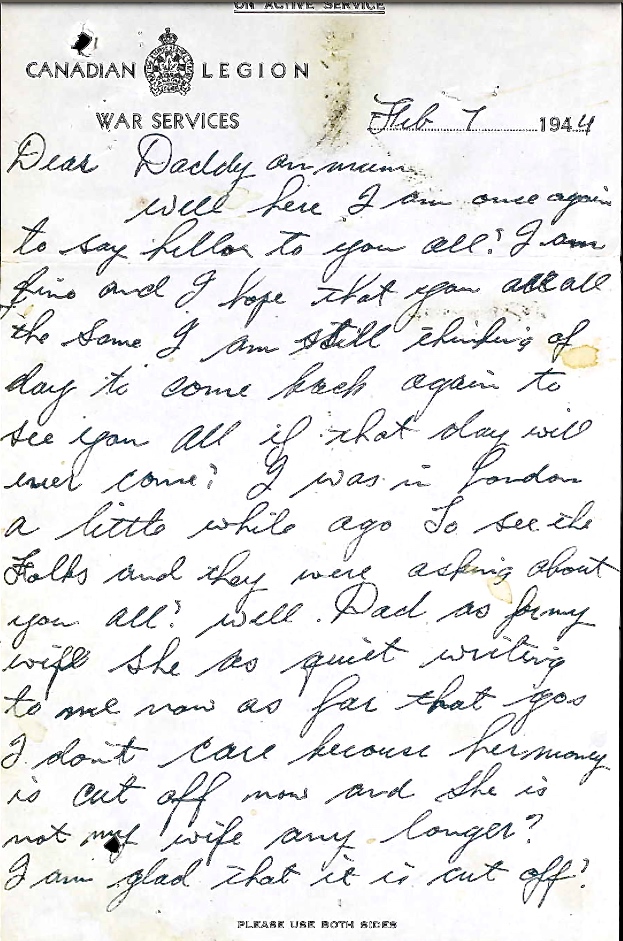 ON ACTIVE SERVICE
CANADIAN LEGION
WAR SERVICES
Feb 7 1944
Dear Daddy an mum
will here I am once again
to say hello to you all? I am
fino and I hope that you all all
the same I am still thinking of
day to come back again to
see you all if that day will
ever come? I was in London
a little while ago To see the
Folks and they were asking about
you all? will. Dad as for my
wife She as quiet writing
to me now as far that gos
I don't care because her money
is cut off now and she is
not my wife any longer?
I am glad that it is cut off?
PLEASE USE BOTH SIDES